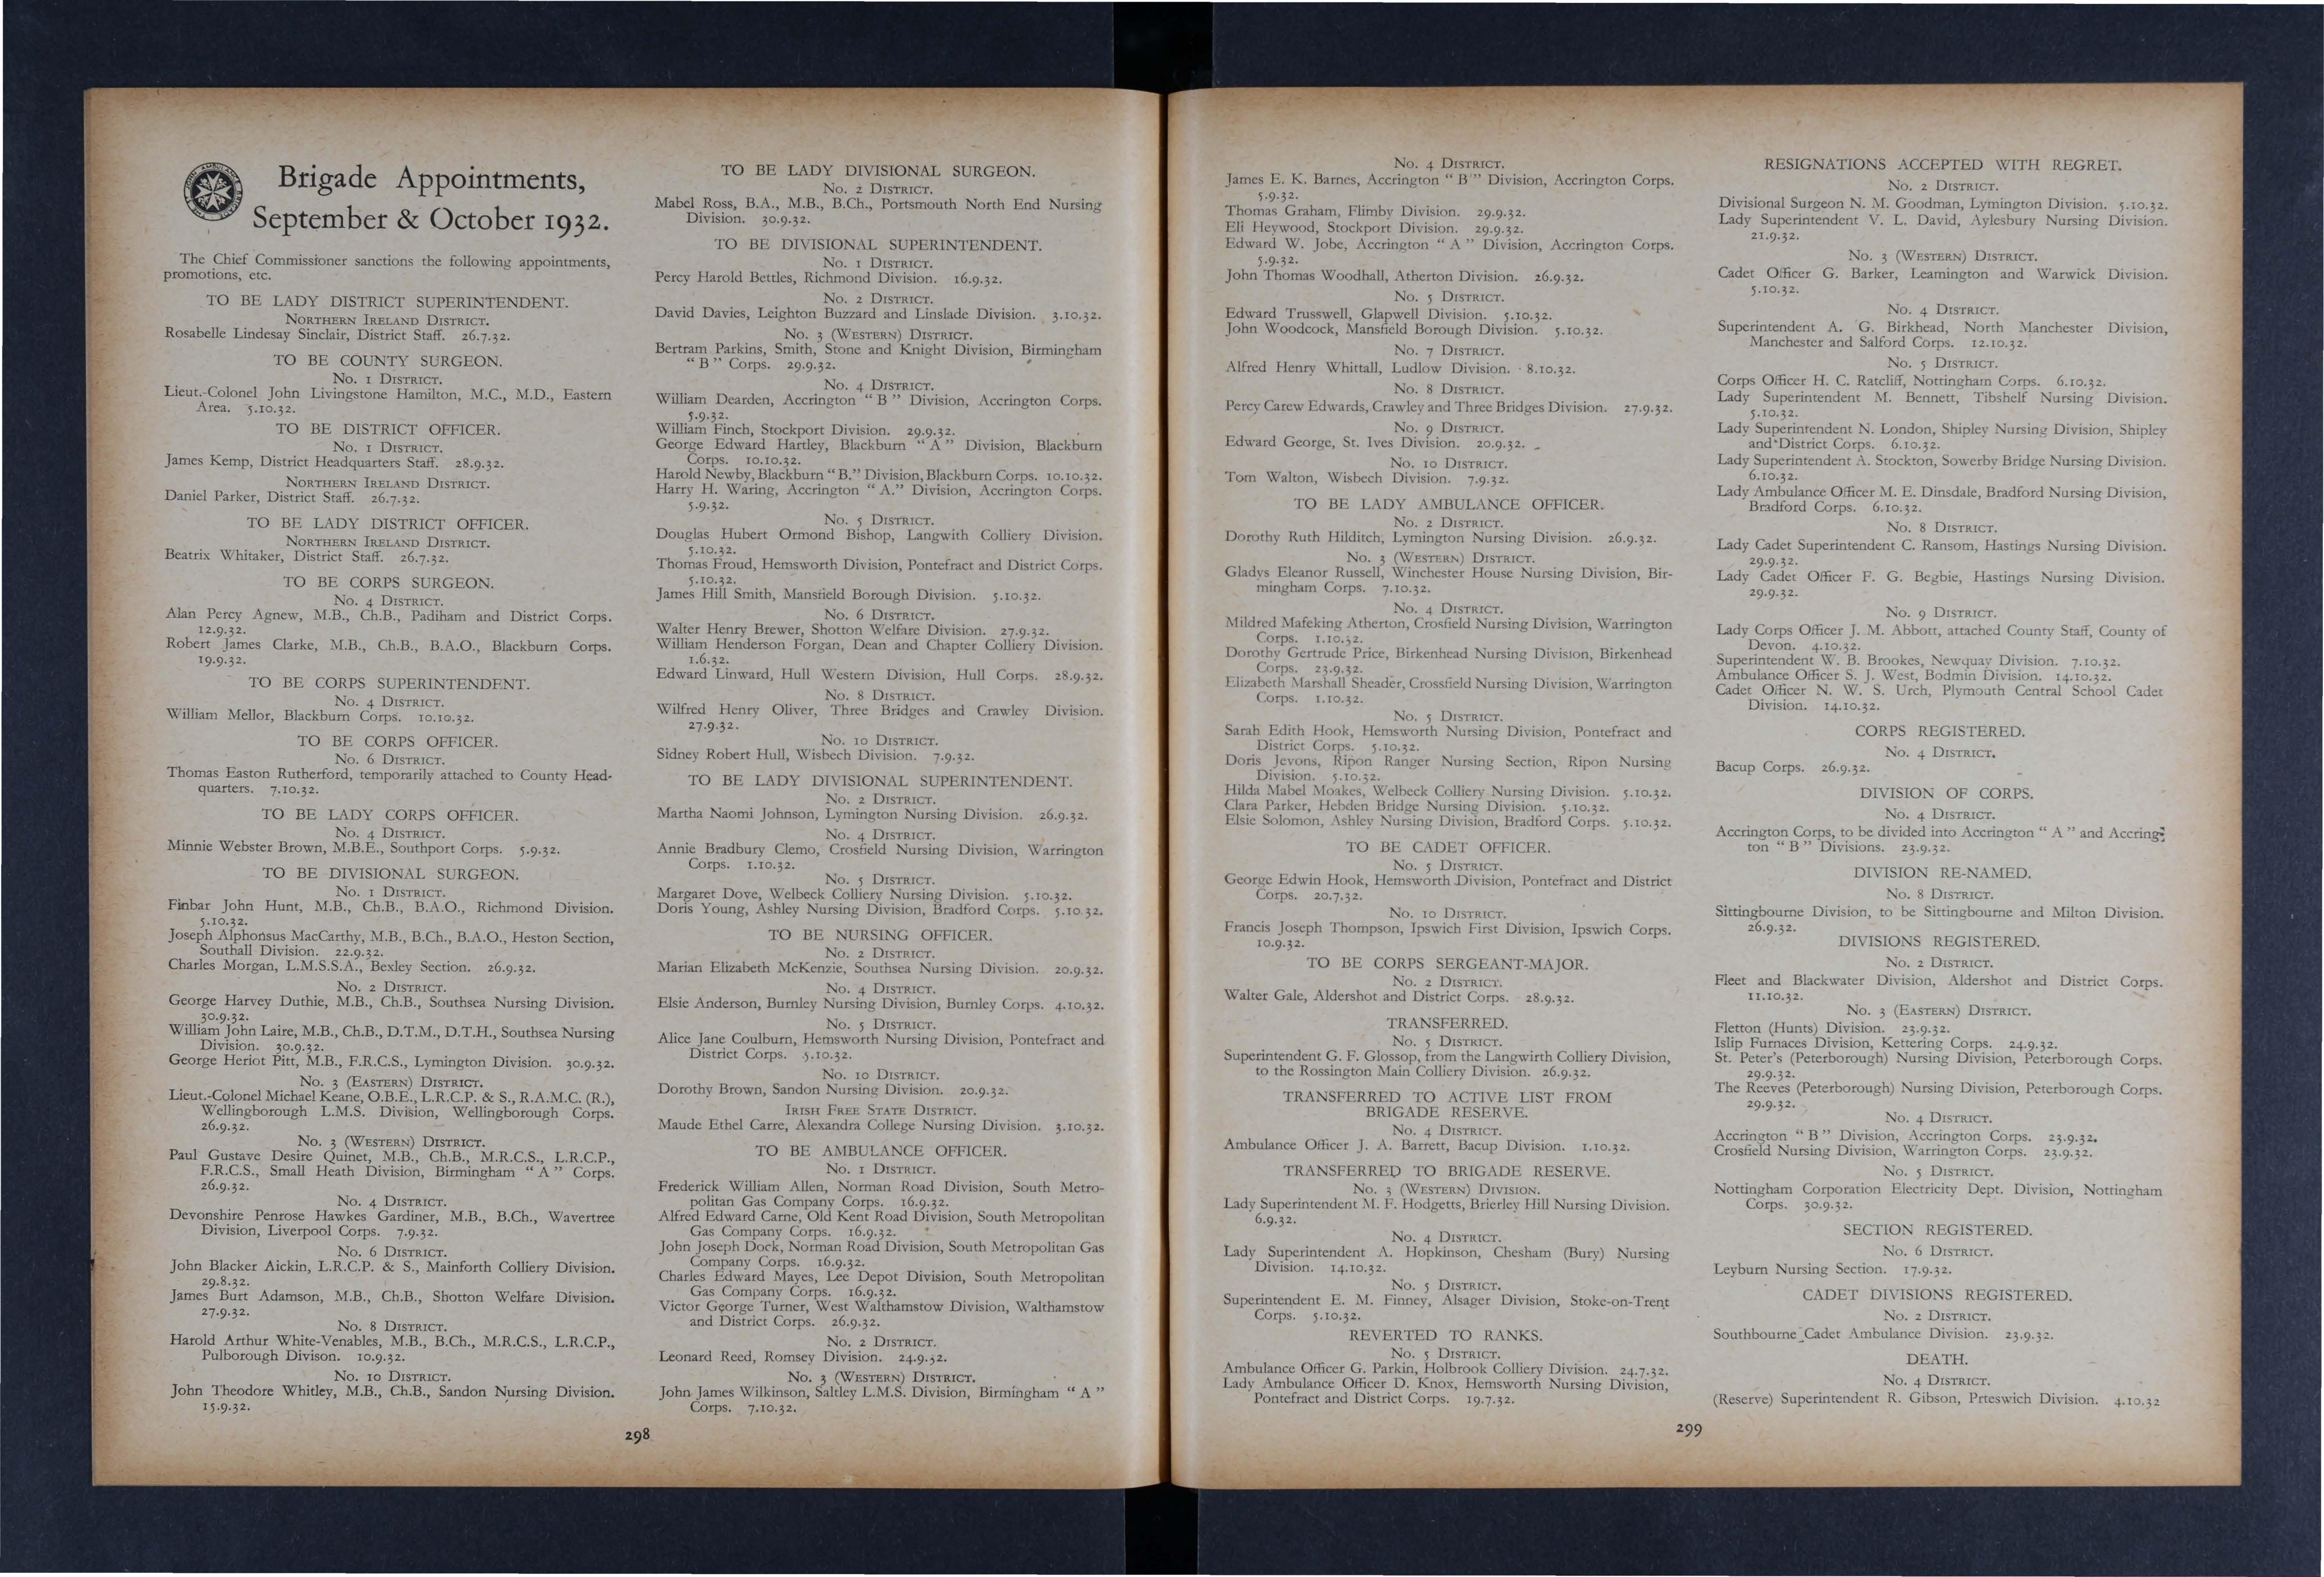 Brigade Appointments,
September & October 1932.
The Chief Commissioner sanctions the following appointments,
promotions, etc.
TO BE LADY DISTRICT SUPERINTENDENT.
NORTHERN IRELAND DISTRICT.
Rosabelle Lindesay Sinclair, District Staff. 26.7.32.
TO BE COUNTY SURGEON.
No. 1 DISTRICT.
Lieut.-Colonel John Livingstone Hamilton, M.C., M.D., Eastern
Area. 5.10.32.
TO BE DISTRICT OFFICER.
No. 1 DISTRICT.
James Kemp, District Headquarters Staff. 28.9.32.
NORTHERN IRELAND DISTRICT.
Daniel Parker, District Staff. 26.7.32.
TO BE LADY DISTRICT OFFICER.
NORTHERN IRELAND DISTRICT.
Beatrix Whitaker, District Staff. 26.7.32.
TO BE CORPS SURGEON.
No. 4 DISTRICT.
Alan Percy Agnew, M.B., Ch.B., Padiham and District Corps.
12.9.32.
Robert James Clarke, M.B., Ch.B., B.A.O., Blackburn Corps.
19.9.32.
TO BE CORPS SUPERINTENDENT.
No. 4 DISTRICT.
William Mellor, Blackburn Corps. 10.10.32.
TO BE CORPS OFFICER.
No. 6 DISTRICT.
Thomas Easton Rutherford, temporarily attached to County Head-
quarters. 7.10.32.
TO BE LADY CORPS OFFICER.
No. 4 DISTRICT.
Minnie Webster Brown, M.B.E., Southport Corps. 5.9.32.
TO BE DIVISIONAL SURGEON.
No. 1 DISTRICT.
Finbar John Hunt, M.B., Ch.B., B.A.O., Richmond Division.
5.10.32.
Joseph Alphonsus MacCarthy, M.B., B.Ch., B.A.O., Heston Section,
Southall Division. 22.9.32.
Charles Morgan, L.M.S.S.A., Bexley Section. 26.9.32.
No. 2 DISTRICT.
George Harvey Duthie, M.B., Ch.B., Southsea Nursing Division.
30.9.32.
William John Laire, M.B., Ch.B., D.T.M., D.T.H., Southsea Nursing
Division. 30.9.32.
George Heriot Pitt, M.B., F.R.C.S., Lymington Division. 30.9.32.
No. 3 (EASTERN) DISTRICT.
Lieut.-Colonel Michael Keane, O.B.E., L.R.C.P. & S., R.A.M.C. (R.),
Wellingborough L.M.S. Division, Wellingborough Corps.
26.9.32.
No. 3 (WESTERN) DISTRICT.
Paul Gustave Desire Quinet, M.B., Ch.B., M.R.C.S., L.R.C.P.,
F.R.C.S., Small Heath Division, Birmingham " A " Corps.
26.9.32.
No. 4 DISTRICT.
Devonshire Penrose Hawkes Gardiner, M.B., B.Ch., Wavertree
Division, Liverpool Corps. 7.9.32.
No. 6 DISTRICT.
John Blacker Aickin, L.R.C.P. & S., Mainforth Colliery Division.
29.8.32.
James Burt Adamson, M.B., Ch.B., Shotton Welfare Division.
27.9.32.
No. 8 DISTRICT.
Harold Arthur White-Venables, M.B., B.Ch., M.R.C.S., L.R.C.P.,
Pulborough Divison. 10.9.32.
No. 10 DISTRICT.
John Theodore Whitley, M.B., Ch.B., Sandon Nursing Division.
15.9.32.
TO BE LADY DIVISIONAL SURGEON.
No. 2 DISTRICT.
Mabel Ross, B.A., M.B., B.Ch., Portsmouth North End Nursing
Division. 30.9.32.
TO BE DIVISIONAL SUPERINTENDENT.
No. 1 DISTRICT.
Percy Harold Bettles, Richmond Division. 16.9.32.
No. 2 DISTRICT.
David Davies, Leighton Buzzard and Linslade Division. 3.10.32.
No. 3 (WESTERN) DISTRICT.
Bertram Parkins, Smith, Stone and Knight Division, Birmingham
" B " Corps. 29.9.32.
No. 4 DISTRICT.
William Dearden, Accrington " B " Division, Accrington Corps.
5.9.32.
William Finch, Stockport Division. 29.9.32.
George Edward Hartley, Blackburn " A " Division, Blackburn
Corps. 10.10.32.
Harold Newby, Blackburn " B." Division, Blackburn Corps. 10.10.32.
Harry H. Waring, Accrington " A." Division, Accrington Corps.
5.9.32.
No. 5 DISTRICT.
Douglas Hubert Ormond Bishop, Langwith Colliery Division.
5.10.32.
Thomas Froud, Hemsworth Division, Pontefract and District Corps.
5.10.32.
James Hill Smith, Mansfield Borough Division. 5.10.32.
No. 6 DISTRICT.
Walter Henry Brewer, Shotton Welfare Division. 27.9.32.
William Henderson Forgan, Dean and Chapter Colliery Division.
1.6.32.
Edward Linward, Hull Western Division, Hull Corps. 28.9.32.
No. 8 DISTRICT.
Wilfred Henry Oliver, Three Bridges and Crawley Division.
27.9.32.
No. 10 DISTRICT.
Sidney Robert Hull, Wisbech Division. 7.9.32.
TO BE LADY DIVISIONAL SUPERINTENDENT.
No. 2 DISTRICT.
Martha Naomi Johnson, Lymington Nursing Division. 26.9.32.
No. 4 DISTRICT.
Annie Bradbury Clemo, Crosfield Nursing Division, Warrington
Corps. 1.10.32.
No. 5 DISTRICT.
Margaret Dove, Welbeck Colliery Nursing Division. 5.10.32.
Doris Young, Ashley Nursing Division, Bradford Corps. 5.10.32.
TO BE NURSING OFFICER.
No. 2 DISTRICT.
Marian Elizabeth McKenzie, Southsea Nursing Division. 20.9.32.
No. 4 DISTRICT.
Elsie Anderson, Burnley Nursing Division, Burnley Corps. 4.10.32.
No. 5 DISTRICT.
Alice Jane Coulburn, Hemsworth Nursing Division, Pontefract and
District Corps. 5.10.32.
No. 10 DISTRICT.
Dorothy Brown, Sandon Nursing Division. 20.9.32.
IRISH FREE STATE DISTRICT.
Maude Ethel Carre, Alexandra College Nursing Division. 3.10.32.
TO BE AMBULANCE OFFICER.
No. 1 DISTRICT.
Frederick William Allen, Norman Road Division, South Metro-
politan Gas Company Corps. 16.9.32.
Alfred Edward Carne, Old Kent Road Division, South Metropolitan
Gas Company Corps. 16.9.32.
John Joseph Dock, Norman Road Division, South Metropolitan Gas
Company Corps. 16.9.32.
Charles Edward Mayes, Lee Depot Division, South Metropolitan
Gas Company Corps. 16.9.32.
Victor George Turner, West Walthamstow Division, Walthamstow
and District Corps. 26.9.32.
No. 2 DISTRICT.
Leonard Reed, Romsey Division. 24.9.32.
No. 3 (WESTERN) DISTRICT.
John James Wilkinson, Saltley L.M.S. Division, Birmingham " A "
Corps. 7.10.32.
298
No. 4 DISTRICT.
James E. K. Barnes, Accrington " B " Division, Accrington Corps.
5.9.32.
Thomas Graham, Flimby Division. 29.9.32.
Eli Heywood, Stockport Division. 29.9.32.
Edward W. Jobe, Accrington " A " Division, Accrington Corps.
5.9.32.
John Thomas Woodhall, Atherton Division. 26.9.32.
No. 5 DISTRICT.
Edward Trusswell, Glapwell Division. 5.10.32.
John Woodcock, Mansfield Borough Division. 5.10.32.
No. 7 DISTRICT.
Alfred Henry Whittall, Ludlow Division. 8.10.32.
No. 8 DISTRICT.
Percy Carew Edwards, Crawley and Three Bridges Division. 27.9.32.
No. 9 DISTRICT.
Edward George, St. Ives Division. 20.9.32.
No. 10 DISTRICT.
Tom Walton, Wisbech Division. 7.9.32.
TO BE LADY AMBULANCE OFFICER.
No. 2 DISTRICT.
Dorothy Ruth Hilditch, Lymington Nursing Division. 26.9.32.
No. 3 (WESTERN) DISTRICT.
Gladys Eleanor Russell, Winchester House Nursing Division, Bir-
mingham Corps. 7.10.32.
No. 4 DISTRICT.
Mildred Mafeking Atherton, Crosfield Nursing Division, Warrington
Corps. 1.10.32.
Dorothy Gertrude Price, Birkenhead Nursing Division, Birkenhead
Corps. 23.9.32.
Elizabeth Marshall Sheader, Crossfield Nursing Division, Warrington
Corps. 1.10.32.
No. 5 DISTRICT.
Sarah Edith Hook, Hemsworth Nursing Division, Pontefract and
District Corps. 5.10.32.
Doris Jevons, Ripon Ranger Nursing Section, Ripon Nursing
Division. 5.10.32.
Hilda Mabel Moakes, Welbeck Colliery Nursing Division. 5.10.32.
Clara Parker, Hebden Bridge Nursing Division. 5.10.32.
Elsie Solomon, Ashley Nursing Division, Bradford Corps. 5.10.32.
TO BE CADET OFFICER.
No. 5 DISTRICT.
George Edwin Hook, Hemsworth Division, Pontefract and District
Corps. 20.7.32.
No. 10 DISTRICT.
Francis Joseph Thompson, Ipswich First Division, Ipswich Corps.
10.9.32.
TO BE CORPS SERGEANT-MAJOR.
No. 2 DISTRICT.
Walter Gale, Aldershot and District Corps. 28.9.32.
TRANSFERRED.
No. 5 DISTRICT.
Superintendent G. F. Glossop, from the Langwirth Colliery Division,
to the Rossington Main Colliery Division. 26.9.32.
TRANSFERRED TO ACTIVE LIST FROM
BRIGADE RESERVE.
No. 4 DISTRICT.
Ambulance Officer J. A. Barrett, Bacup Division. 1.10.32.
TRANSFERRED TO BRIGADE RESERVE.
No. 3 (WESTERN) DIVISION.
Lady Superintendent M. F. Hodgetts, Brierley Hill Nursing Division.
6.9.32.
No. 4 DISTRICT.
Lady Superintendent A. Hopkinson, Chesham (Bury) Nursing
Division. 14.10.32.
No. 5 DISTRICT.
Superintendent E. M. Finney, Alsager Division, Stoke-on-Trent
Corps. 5.10.32.
REVERTED TO RANKS.
No. 5 DISTRICT.
Ambulance Officer G. Parkin, Holbrook Colliery Division. 24.7.32.
Lady Ambulance Officer D. Knox, Hemsworth Nursing Division,
Pontefract and District Corps. 19.7.32.
RESIGNATIONS ACCEPTED WITH REGRET.
No. 2 DISTRICT.
Divisional Surgeon N. M. Goodman, Lymington Division. 5.10.32.
Lady Superintendent V. L. David, Aylesbury Nursing Division.
21.9.32.
No. 3 (WESTERN) DISTRICT.
Cadet Officer G. Barker, Leamington and Warwick Division.
5.10.32.
No. 4 DISTRICT.
Superintendent A. G. Birkhead, North Manchester Division,
Manchester and Salford Corps. 12.10.32.
No. 5 DISTRICT.
Corps Officer H. C. Ratcliff, Nottingham Corps. 6.10.32.
Lady Superintendent M. Bennett, Tibshelf Nursing Division.
5.10.32.
Lady Superintendent N. London, Shipley Nursing Division, Shipley
and District Corps. 6.10.32.
Lady Superintendent A. Stockton, Sowerby Bridge Nursing Division.
6.10.32.
Lady Ambulance Officer M. E. Dinsdale, Bradford Nursing Division,
Bradford Corps. 6.10.32.
No. 8 DISTRICT.
Lady Cadet Superintendent C. Ransom, Hastings Nursing Division.
29.9.32.
Lady Cadet Officer F. G. Begbie, Hastings Nursing Division.
29.9.32.
No. 9 DISTRICT.
Lady Corps Officer J. M. Abbott, attached County Staff, County of
Devon. 4.10.32.
Superintendent W. B. Brookes, Newquay Division. 7.10.32.
Ambulance Officer S. J. West, Bodmin Division. 14.10.32.
Cadet Officer N. W. S. Urch, Plymouth Central School Cadet
Division. 14.10.32.
CORPS REGISTERED.
No. 4 DISTRICT.
Bacup Corps. 26.9.32.
DIVISION OF CORPS.
No. 4 DISTRICT.
Accrington Corps, to be divided into Accrington " A " and Accring-
ton " B " Divisions. 23.9.32.
DIVISION RE-NAMED.
No. 8 DISTRICT.
Sittingbourne Division, to be Sittingbourne and Milton Division.
26.9.32.
DIVISIONS REGISTERED.
No. 2 DISTRICT.
Fleet and Blackwater Division, Aldershot and District Corps.
11.10.32.
No. 3 (EASTERN) DISTRICT.
Fletton (Hunts) Division. 23.9.32.
Islip Furnaces Division, Kettering Corps. 24.9.32.
St. Peter's (Peterborough) Nursing Division, Peterborough Corps.
29.9.32.
The Reeves (Peterborough) Nursing Division, Peterborough Corps.
29.9.32.
No. 4 DISTRICT.
Accrington " B " Division, Accrington Corps. 23.9.32.
Crosfield Nursing Division, Warrington Corps. 23.9.32.
No. 5 DISTRICT.
Nottingham Corporation Electricity Dept. Division, Nottingham
Corps. 30.9.32.
SECTION REGISTERED.
No. 6 DISTRICT.
Leyburn Nursing Section. 17.9.32.
CADET DIVISIONS REGISTERED.
No. 2 DISTRICT.
Southbourne Cadet Ambulance Division. 23.9.32.
DEATH.
No. 4 DISTRICT.
(Reserve) Superintendent R. Gibson, Prteswich Division. 4.10.32
299